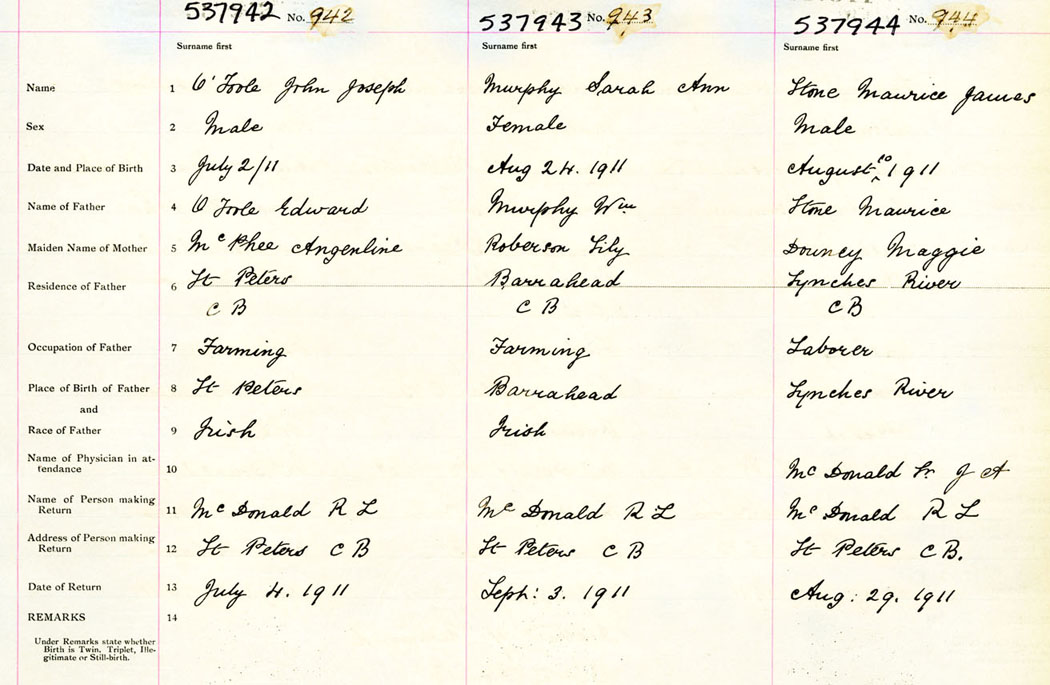 537942 No. 942 537943 No. 943 537944 No. 944
Surname first Surname first Surname first
Name 1 O'Toole John Joseph Murphy Sarah Ann Stone Maurice James
Sex 2 Male Female Male
Date and Place of Birth 3 July 2/11 Aug 24. 1911 August 10 1911
Name of Father 4 O Toole Edward Murphy Wm Stone Maurice
Maiden Name of Mother 5 McPhee Angenline Roberson Lily Downey Maggie
Residence of Father 6 St Peters Barrahead Lynches River
C B C B C B
Occupation of Father 7 Farming Farming Laborer
Place of Birth of Father 8 St Peters Barrahead Lynches River
and
Race of Father 9 Irish Irish
Name of Physician in at-
tendance 10 McDonald J A
Name of Person making
Return 11 McDonald R L McDonald R L McDonald R L
Address of Person making
Return 12 St Peters C B St Peters C B St Peters C B.
Date of Return 13 July 4. 1911 Sept: 3. 1911 Aug: 29. 1911
REMARKS 14
Under Remarks state whether
Birth is Twin, Triplet, Ille-
gitimate or Still-birth.